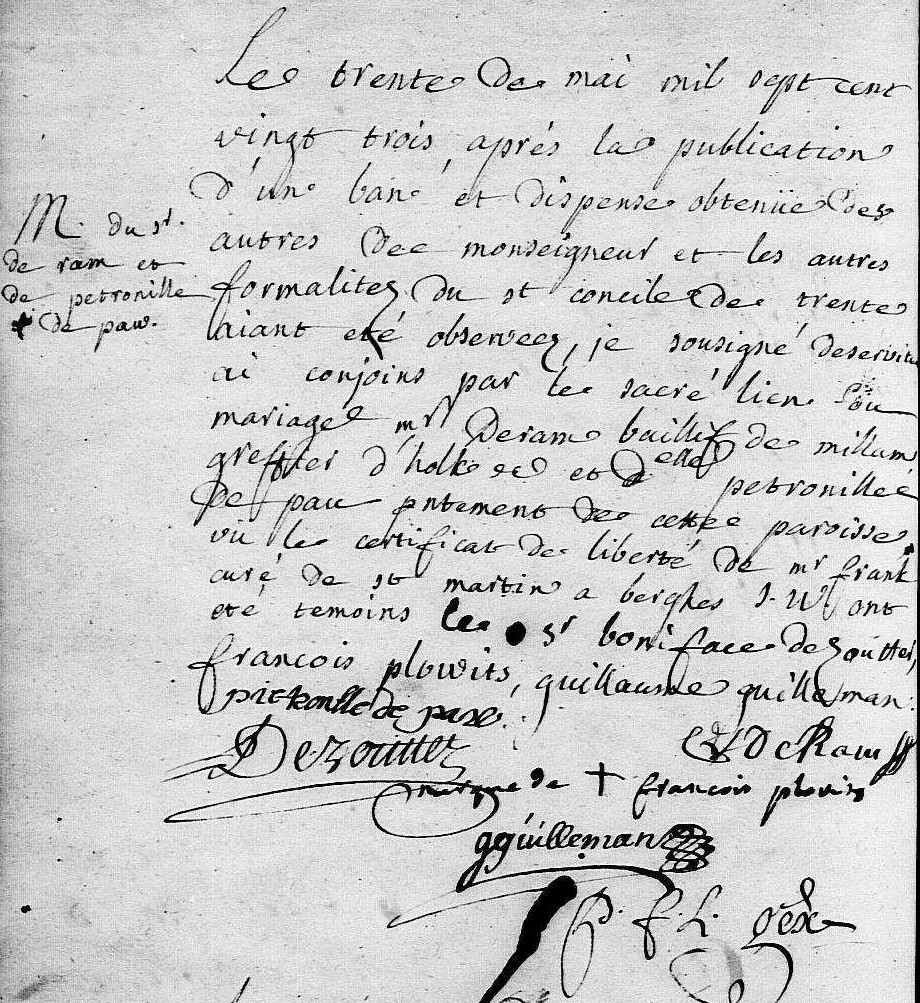 Le trente de mai mil sept cent
vingt trois, aprés la publication
d'un ban et dispense obtenüe des
autres de monseigneur et les autres
formalitez du st concile de trente
aiant eté observeez, je sousigné deservit
ai conjoins par le sacré lien du
mariage mr Deram baillif de millam
greffier d'holke et delle petronille
de pau pntement de cette paroisse
vu le certificat de liberté de mr frank
curé de st martin a berghes S. W ont
eté temoins le sr boniface dezoutter,
francois plowits, guillaume guilleman
M. du sr.
de ram et
de petronille
de pau.
de pau
Dezoutter
DeRam
marque de + francois plovits
gguilleman
P. f. L.